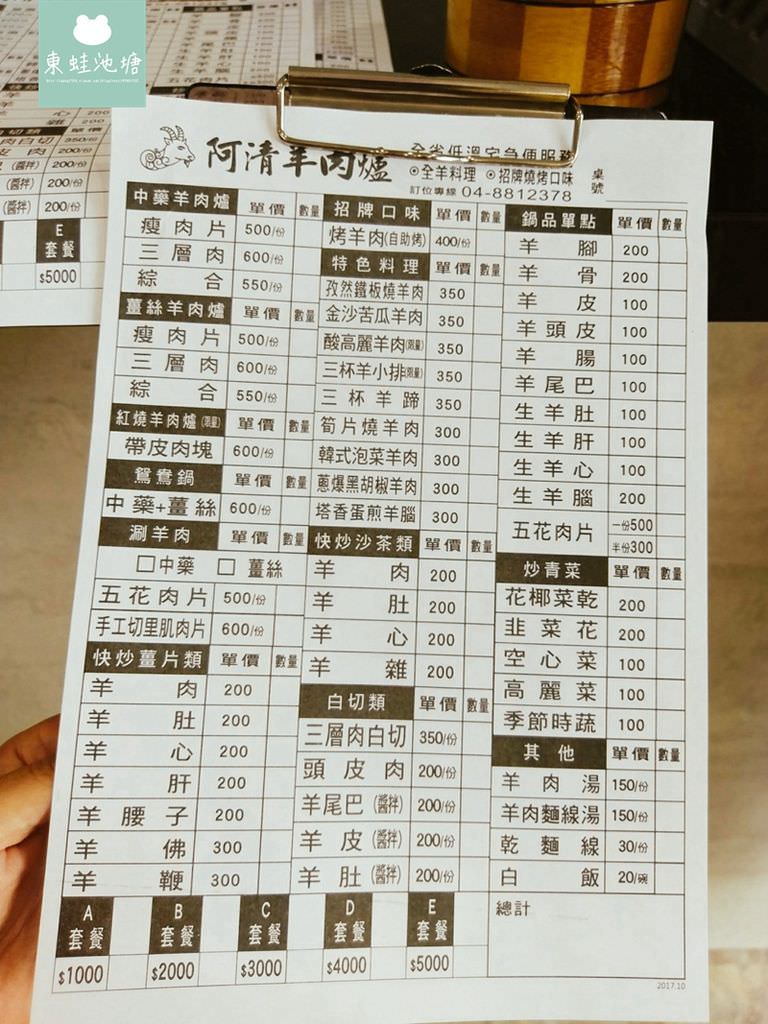 東蛙池塘
阿清羊肉爐
全省低溫宅急便服務
⊙全羊料理 ⊙招牌燒烤口味
訂位專線 04-8812378
桌號
中藥羊肉爐 單價 數量
瘦肉片 500/份
三層肉 600/份
綜合 550/份
薑絲羊肉爐 單價 數量
瘦肉片 500/份
三層肉 600/份
綜合 550/份
紅燒羊肉爐(限量) 單價 數量
帶皮肉塊 600/份
鴛鴦鍋 單價 數量
中藥+薑絲 600/份
涮羊肉 單價 數量
□中藥 □薑絲
五花肉片 500/份
手工切里肌肉片 600/份
快炒薑片類 單價 數量
羊肉 200
羊肚 200
羊心 200
羊肝 200
羊腰子 200
羊佛 300
羊鞭 300
招牌口味 單價 數量
烤羊肉(自助烤) 400/份
特色料理 單價 數量
孜然鐵板燒羊肉 350
金沙苦瓜羊肉 350
酸高麗羊肉(限量) 350
三杯羊小排(限量) 350
三杯羊蹄 350
筍片燒羊肉 300
韓式泡菜羊肉 300
蔥爆黑胡椒羊肉 300
塔香蛋煎羊腦 300
快炒沙茶類 單價 數量
羊肉 200
羊肚 200
羊心 200
羊雜 200
白切類 單價 數量
三層肉白切 350/份
頭皮肉 200/份
羊尾巴(醬拌) 200/份
羊皮(醬拌) 200/份
羊肚(醬拌) 200/份
鍋品單點 單價 數量
羊腳 200
羊骨 200
羊皮 100
羊頭皮 100
羊腸 100
羊尾巴 100
生羊肚 100
生羊肝 100
生羊心 100
生羊腦 200
五花肉片 一份500
半份300
炒青菜 單價 數量
花椰菜乾 200
韭菜花 200
空心菜 100
高麗菜 100
季節時蔬 100
其他 單價 數量
羊肉湯 150/份
羊肉麵線湯 150/份
乾麵線 30/份
白飯 20/碗
A套餐 B套餐 C套餐 D套餐 E套餐
$1000 $2000 $3000 $4000 $5000
總計
2017.10
E
套餐
$5000